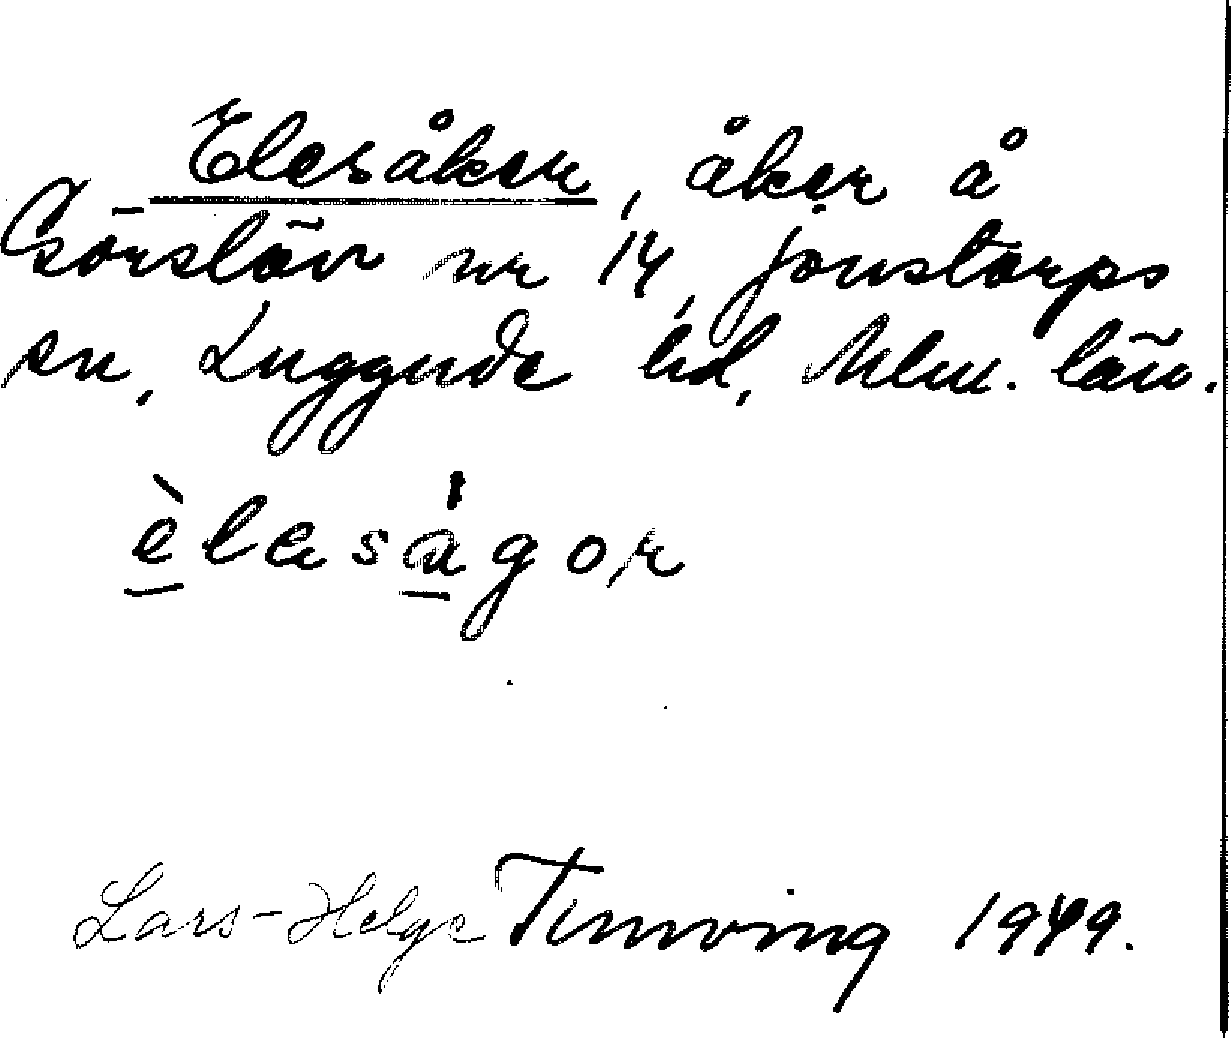 Elesåker, åker å
Görslöv nr 14, Jonstorps
sn, Luggude hd, Mlm. län.
èlaságor
Lars-Helge Tunving 1949.